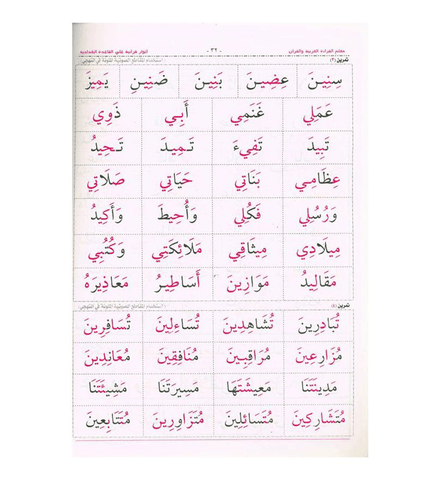 معلم القراءة العربية والقرآن - ٣٢ - أنوار قرآنية على القاعدة البغدادية
تمرين (٣) استخدام المقاطع الصوتية الملونة في التهجي
سِنِينَ عِضِينَ بَنِينَ ضَنِينٍ يَمِيزَ
عَمَلِي غَنَمِي أَبِي ذَوِي
تَبِيدَ تَفِيءَ تَمِيدَ تَحِيدُ
عِظَامِي بَنَاتِي حَيَاتِي صَلَاتِي
وَرُسُلِي فَكُلِي وَأُحِيطَ وَأَكِيدُ
مِيلَادِي مِيثَاقِي مَلَائِكَتِي وَكُتُبِي
مَقَالِيدُ مَوَازِينَ أَسَاطِيرُ مَعَاذِيرَهُ
تمرين (٤) استخدام المقاطع الصوتية الملونة في التهجي
تُبَادِرِينَ تُشَاهِدِينَ تُسَاءِلِينَ تُسَافِرِينَ
مُزَارِعِينَ مُرَاقِبِينَ مُنَافِقِينَ مُعَانِدِينَ
مَدِينَتَنَا مَعِيشَتَهَا مَسِيرَتَنَا مَشِيئَتَنَا
مُتَشَارِكِينَ مُتَسَائِلِينَ مُتَزَاوِرِينَ مُتَتَابِعِينَ